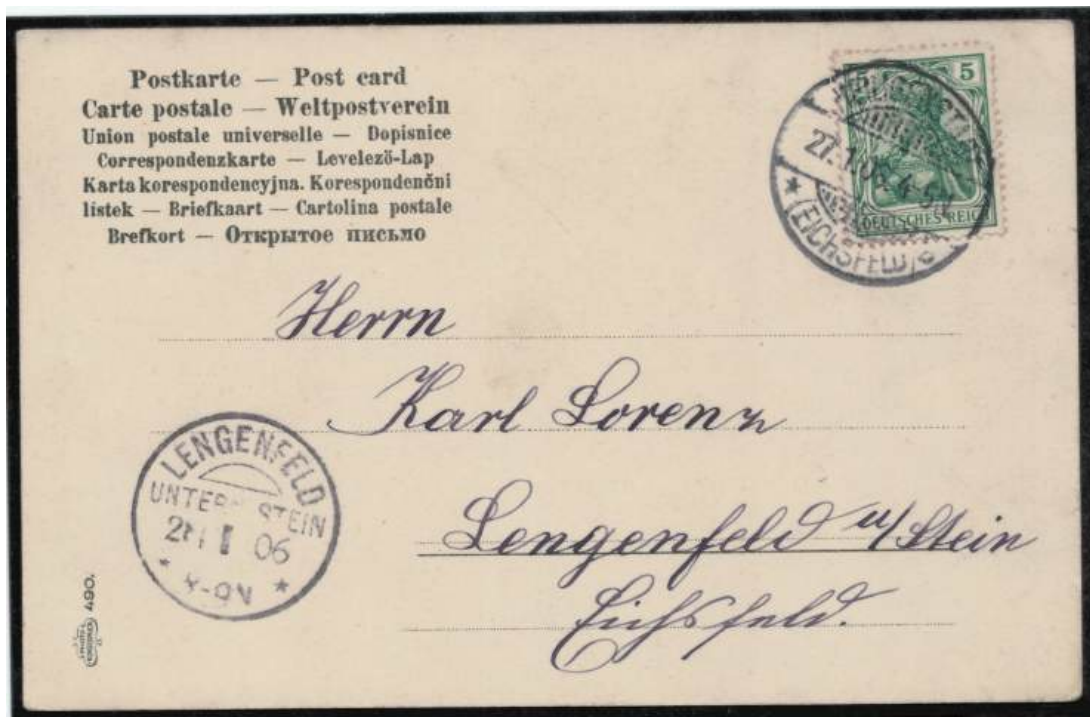 Postkarte — Post card
Carte postale — Weltpostverein
Union postale universelle — Dopisnice
Correspondenzkarte — Levelező-Lap
Karta korespondencyjna. Korespondenční
listek — Briefkaart — Cartolina postale
Brefkort — Открытое письмо
5 5
DEUTSCHES REICH
(EICHSFELD)
Herrn
Karl Lorenz
Lengenfeld u/Stein
Eichsfeld.
LENGENFELD
STEIN
06
8-9N
490.